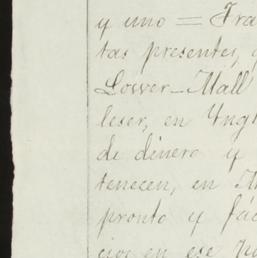 y uno = Fra
tas presentes,
Lower-Mall
leser, en Yngl
de dinero y
tenecen, en
pronto y fác
cios en ese